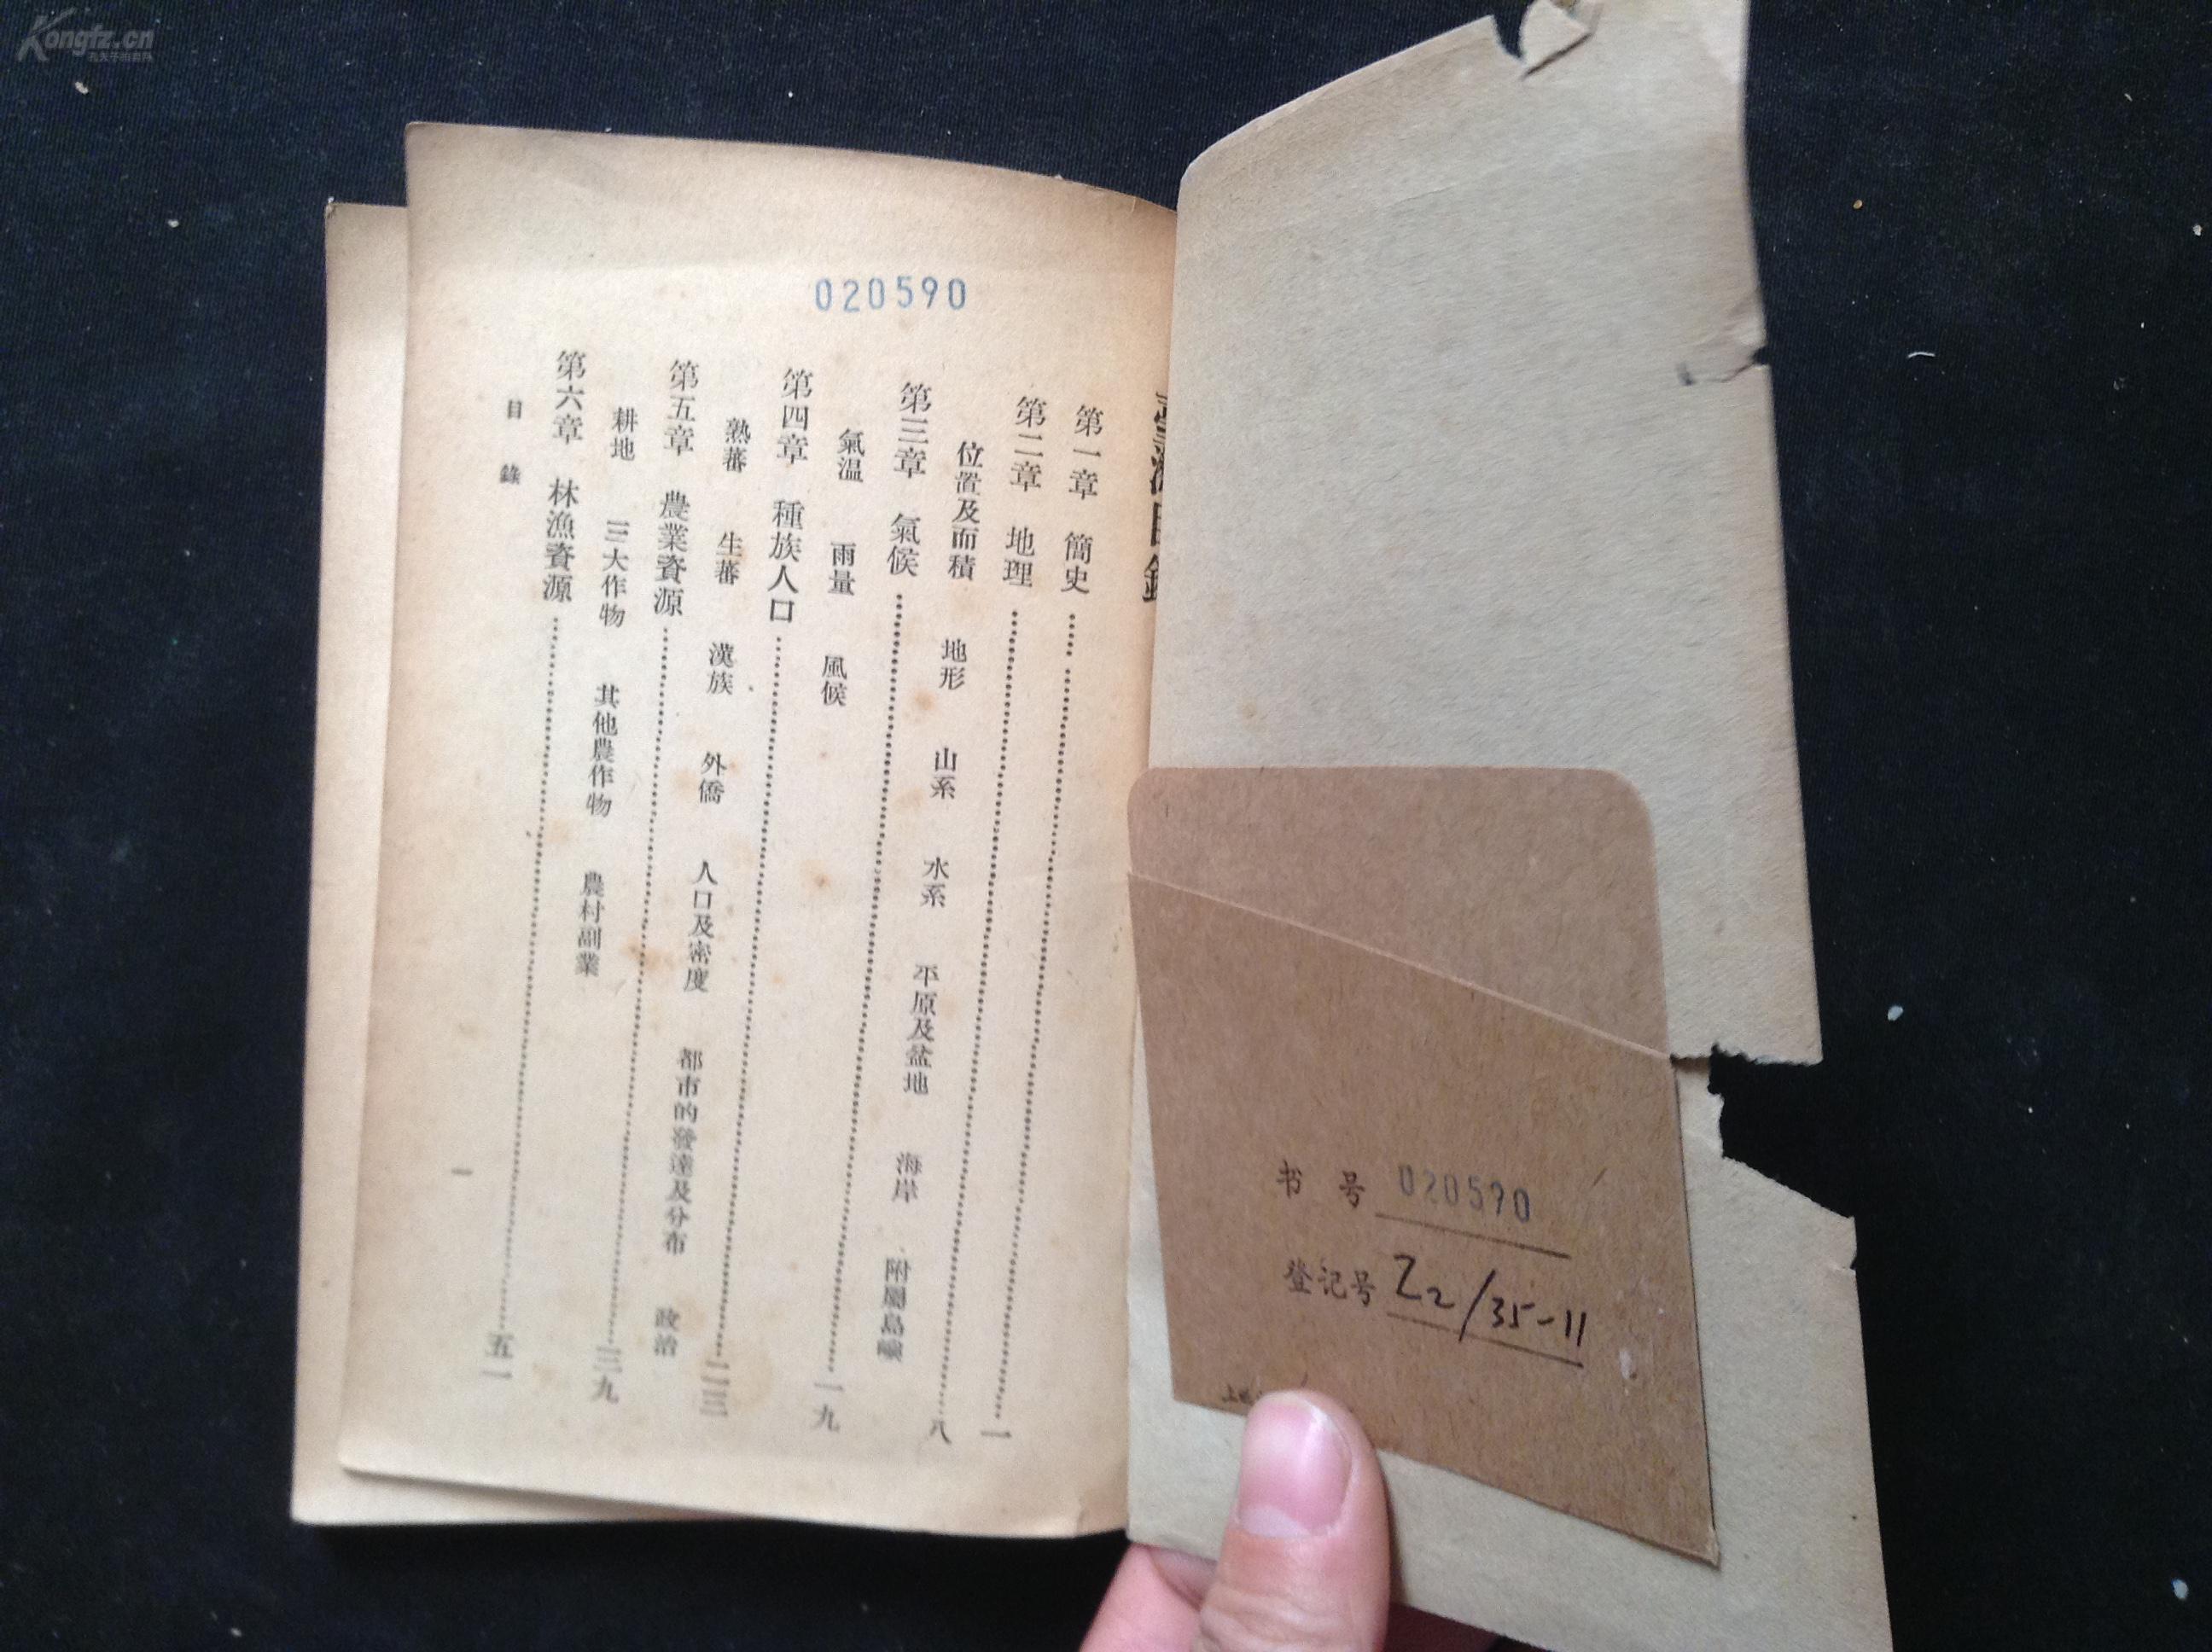 Kongfz.cn
020590
臺灣目錄
第一章 簡史 一
第二章 地理 八
位置及面積 地形 山系 水系 平原及盆地 海岸 附屬島嶼
第三章 氣候 一九
氣温 雨量 風候
第四章 種族人口 二三
熟蕃 生蕃 漢族 外僑 人口及密度 都市的發達及分布 政治
第五章 農業資源 三九
耕地 三大作物 其他農作物 農村副業
第六章 林漁資源 五一
目錄
一
书号 020590
登记号 Z2/35-11